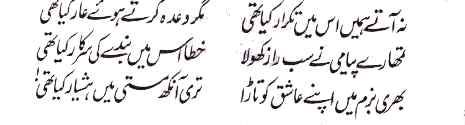 نہ آتے ہمیں اس میں تکرار کیا تھی مگر وعدہ کرتے ہوئے عار کیا تھی
تمھارے پیامی نے سب راز کھولا خطا اس میں بندے کی سرکار کیا تھی
بھری بزم میں اپنے عاشق کو تاڑا تری آنکھ مستی میں ہشیار کیا تھی!